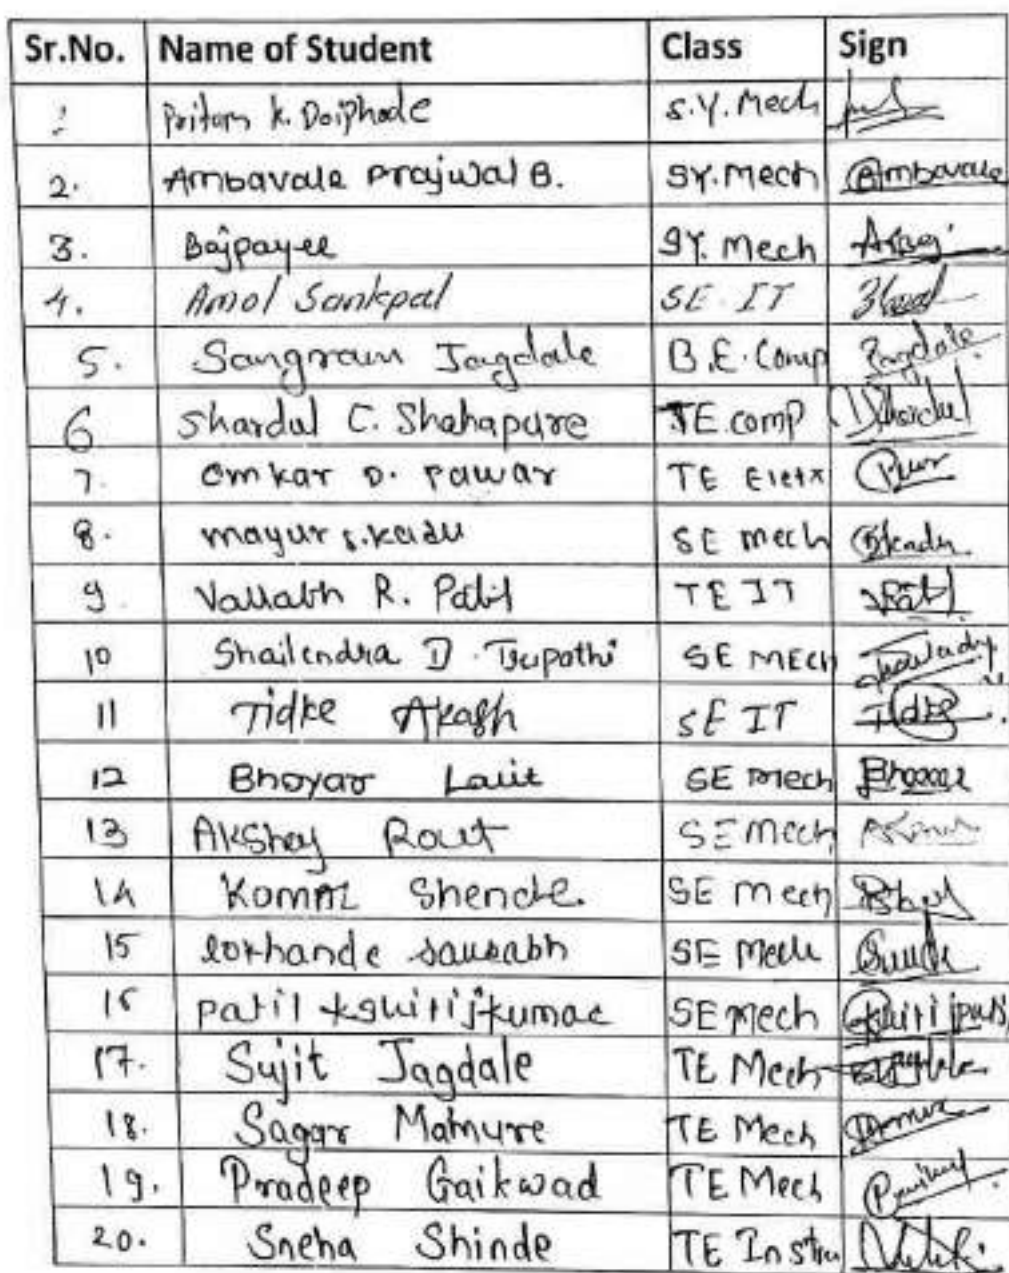 Sr.No. Name of Student Class Sign
1 Pritam K. Doiphode S.Y. Mech
2. Ambavale Prajwal B. SY. Mech Ambavale
3. Bajpayee SY. Mech
4. Amol Sankpal SE. IT
5. Sangram Jagdale B.E. Comp Jagdale
6 Shardul C. Shahapure TE comp Shardul
7. Omkar D. Pawar TE Eletx
8. mayur s. kadu SE mech
9 Vallabh R. Patil TE IT
10 Shailendra D. Tripathi SE MECH
11 Tidke Akash SE IT Tidke
12 Bhoyar Lalit SE mech
13 Akshay Raut SE Mech
14 Komal Shende. SE Mech
15 lokhande saurabh SE Mech
16 patil kshitijkumar SE Mech
17. Sujit Jagdale TE Mech
18. Sagar Mamure TE Mech
19. Pradeep Gaikwad TE Mech
20. Sneha Shinde TE Instru